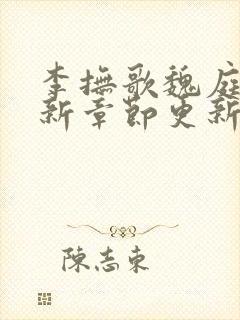 李撫歌魏庭
新章節更新
陳志東